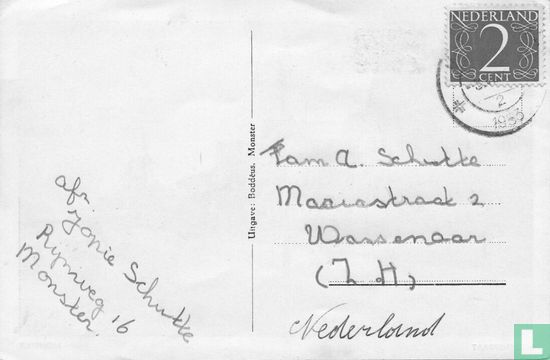 NEDERLAND
2
CENT
2
1953
Uitgave: Boddéus, Monster
Fam A. Schutte
Mariastraat 2
Wassenaar
(Z H)
Nederland
afz.
Jopie Schutte
Rijnweg 16
Monster.